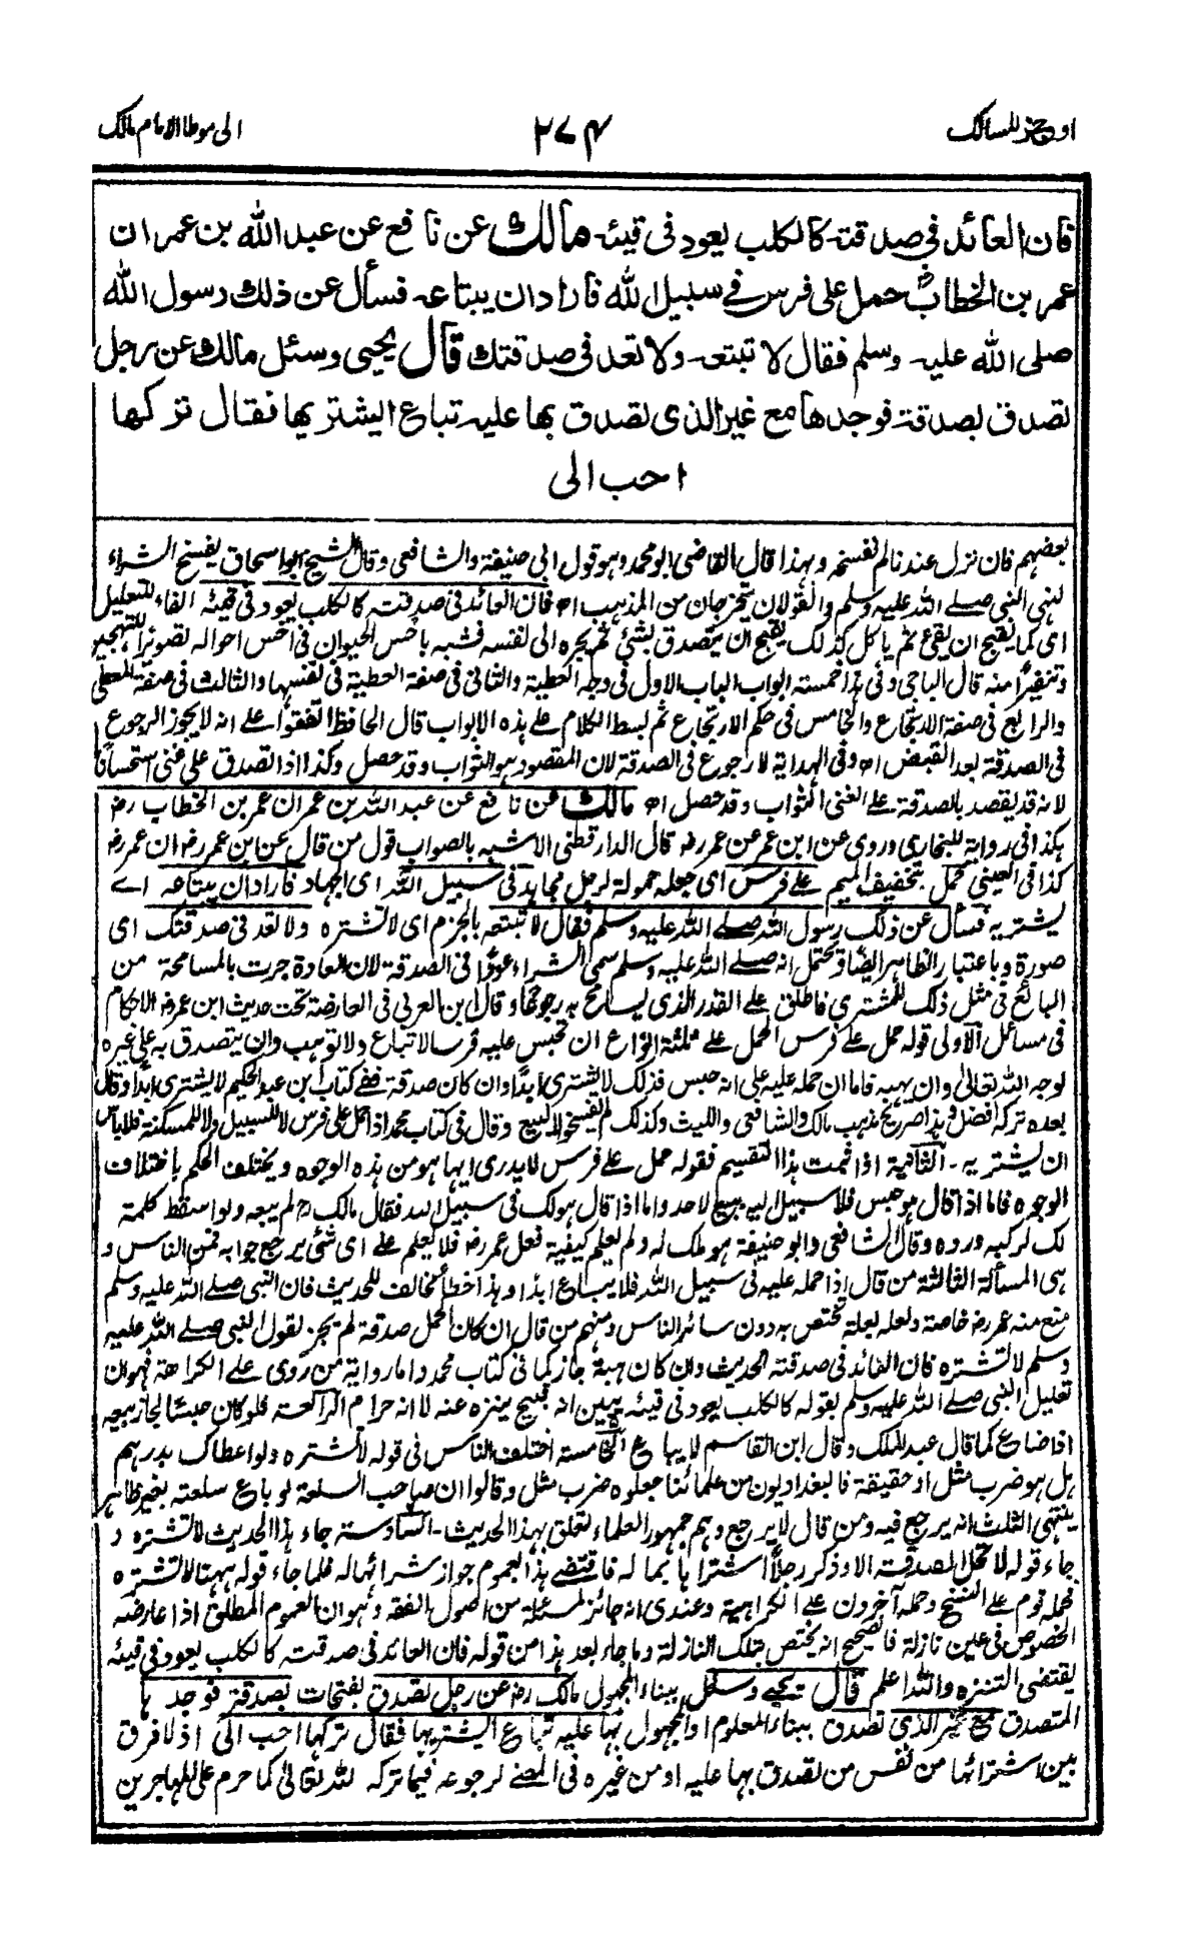 اوجز المسالك
٢٧٤
الى موطا الامام مالك
فان العائد فى صدقته كالكلب يعود فى قيئه مالك عن نافع عن عبد الله بن عمر ان
عمر بن الخطاب رض حمل على فرس فے سبيل الله فاراد ان يبتاعه فسأل عن ذلك رسول الله
صلى الله عليه وسلم فقال لا تبتعه ولا تعد فى صدقتك قال يحيى وسئل مالك عن رجل
تصدق بصدقة فوجدها مع غير الذى تصدق بها عليه تباع ايشتريها فقال تركها
احب الى
بعضهم فان نزل عندنا لم نفسخه وبهذا قال القاضى ابو محمد وهو قول ابى حنيفة والشافعى وقال الشيخ ابو اسحاق يفسخ الشراء
لنهى النبى صلے الله عليه وسلم والقولان يتخرجان من المذهب اھ فان العائد فى صدقته كالكلب يعود فى قيئه الفاء للتعليل
اى كما يقبح ان يقئ ثم ياكل كذلك يقبح ان يتصدق بشئ ثم يجره الى نفسه فشبه باخس الحيوان فى اخس احواله تصويرا للتهجين
وتنفيرا منه قال الباجى وفى هذا خمسة ابواب الباب الاول فى وجه العطية والثانى فى صفة العطية فى نفسها والثالث فى صفة المعطى
والرابع فى صفة الارتجاع والخامس فى حكم الارتجاع ثم بسط الكلام علے هذه الابواب قال الحافظ اتفقوا علے انه لا يجوز الرجوع
فى الصدقة بعد القبض اھ وفى الهداية لا رجوع فى الصدقة لان المقصود هو الثواب وقد حصل وكذا اذا تصدق على غنى استحسانا
لانه قد يقصد بالصدقة علے الغنى الثواب وقد حصل اھ مالك عن نافع عن عبد الله بن عمر ان عمر بن الخطاب رض
هكذا فى رواية للبخارى وروى عن ابن عمر عن عمر رض قال الدارقطنى الاشبه بالصواب قول من قال عن ابن عمر رض ان عمر رض
كذا فى العينى حمل بتخفيف الميم علے فرس اى جعله حمولة لرجل مجاهد فى سبيل الله اى الجهاد فاراد ان يبتاعه اے
يشتريه فسأل عن ذلك رسول الله صلے الله عليه وسلم فقال لا تبتعه بالجزم اى لا تشتره ولا تعد فى صدقتك اى
صورة وباعتبار الظاهر ايضا ويحتمل انه صلے الله عليه وسلم سمى الشراء عودا فى الصدقة لان العادة جرت بالمسامحة من
البائع فى مثل ذلك للمشترى فاطلق علے القدر الذى يسامح به رجوعا وقال ابن العربى فى العارضة تحت حديث ابن عمر رض الاحكام
فى مسائل الاولى قوله حمل علے فرس الحمل علے ثلثة انواع ان يحبس عليه فرسا لا تباع ولا توهب وان يتصدق به على غيره
لوجه الله تعالى وان يهبه فاما ان حمله عليه على انه حبس فذلك لا يشترى ابدا وان كان صدقة ففے كتاب ابن عبد الحكيم لا يشترى ابدا وقال
بعده تركه افضل فى هذا صريح مذهب مالك والشافعى والليث وكذلك لم يفسخوا البيع وقال فى كتاب محمد اذا حمل على فرس لا للسبيل ولا للمسكنة فلا باس
ان يشتريه - الثانية اذا فهمت هذا التقسيم فقوله حمل علے فرس لا يدرى ايها هو من هذه الوجوه ويختلف الحكم باختلاف
الوجوه فاما اذا قال هو حبس فلا سبيل اليه ببيع لاحد واما اذا قال هو لك فى سبيل الله فقال مالك رح لم يبعه ولو اسقط كلمة
لك لركبه ورده وقال الشافعى وابو حنيفة هو ملك له ولم يعلم كيفية فعل عمر رض فلا يعلم علے اى شئ يرجع جوابه فمن الناس و
هى المسألة الثالثة من قال اذا حمله عليه فى سبيل الله فلا يباع ابدا وهذا خطأ مخالف للحديث فان النبى صلے الله عليه وسلم
منع منه عمر رض خاصة ولعله لعلة تختص به دون سائر الناس ومنهم من قال ان كان الحمل صدقة لم يجز لقول النبى صلے الله عليه
وسلم لا تشتره فان العائد فى صدقته الحديث وان كان هبة جاز كما فى كتاب محمد واما رواية من روى علے الكراهة فهو ان
تعليل النبى صلے الله عليه وسلم بقوله كالكلب يعود فى قيئه يبين انه قبيح يتنزه عنه لا انه حرام الرابعة فلو كان حبسا لجاز بيعه
اذا ضاع كما قال عبد الملك وقال ابن القاسم لا يباع الخامسة اختلف الناس فى قوله لا تشتره ولو اعطاك بدرهم
هل هو ضرب مثل او حقيقة فالبغداديون من علمائنا جعلوه ضرب مثل وقالوا ان صاحب السلعة لو باع سلعته بغير ظاهر
ينتهى الثلث انه يرجع فيه ومن قال لا يرجع وهم جمهور العلماء تعلق بهذا الحديث - السادسة جاء هذا الحديث لا تشتره و
جاء قوله لا تحل الصدقة الا وذكر رجلا اشتراها بماله فاقتضے هذا العموم جواز شرائها له فلما جاء قوله ههنا لا تشتره
فحمله قوم علے الفسخ وحمله آخرون علے الكراهية وعندى انه جائز لمسئلة من اصول الفقه وهو ان العموم المطلق اذا عارضه
الخصوص فى عين نازلة فالصحيح انه يختص بتلك النازلة وما جاء بعد هذا من قوله فان العائد فى صدقته كالكلب يعود فى قيئه
يقتضى التنزه والله اعلم قال يحيے وسئل ببناء المجهول مالك رض عن رجل تصدق بفتحات بصدقة فوجدها
المتصدق مع غير الذى تصدق ببناء المعلوم او المجهول بها عليه تباع ايشتريها فقال تركها احب الىّ اذ لا فرق
بين اشترائها من نفس من تصدق بها عليه او من غيره فى المعنے لرجوعه فيما تركه لله تعالىٰ كما حرم على المهاجرين